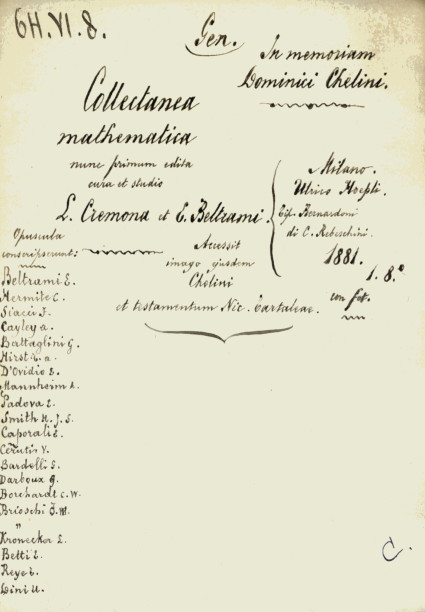 6H.VI.8.
Gen.
In memoriam
Dominici Chelini.
Collectanea
mathematica
nunc primum edita
cura et studio
L. Cremona et E. Beltrami.
Milano.
Ulrico Hoepli.
Tip. Bernardoni
di C. Rebeschini.
1881.
1. 8.°
con fot.
Accessit
imago ejusdem
Chelini
et testamentum Nic. Tartaleae.
Opuscula
conscripserunt:
Beltrami E.
Hermite C.
Siacci F.
Cayley A.
Battaglini G.
Hirst T. A.
D'Ovidio E.
Mannheim A.
Padova E.
Smith H. J. S.
Caporali E.
Cerruti V.
Bardelli G.
Darboux G.
Borchardt C. W.
Brioschi F.
"
Kronecker L.
Betti E.
Reye T.
Dini U.
C.